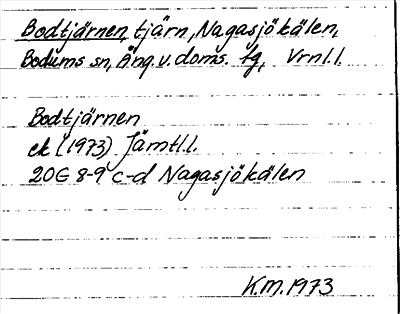 Bodtjärnen, tjärn, Nagasjökälen,
Bodums sn, Ång.v. doms. fg, Vrnl.l.
Bodtjärnen
ek (1973) Jämtl.l.
20G 8-9 c-d Nagasjökälen
K.M. 1973